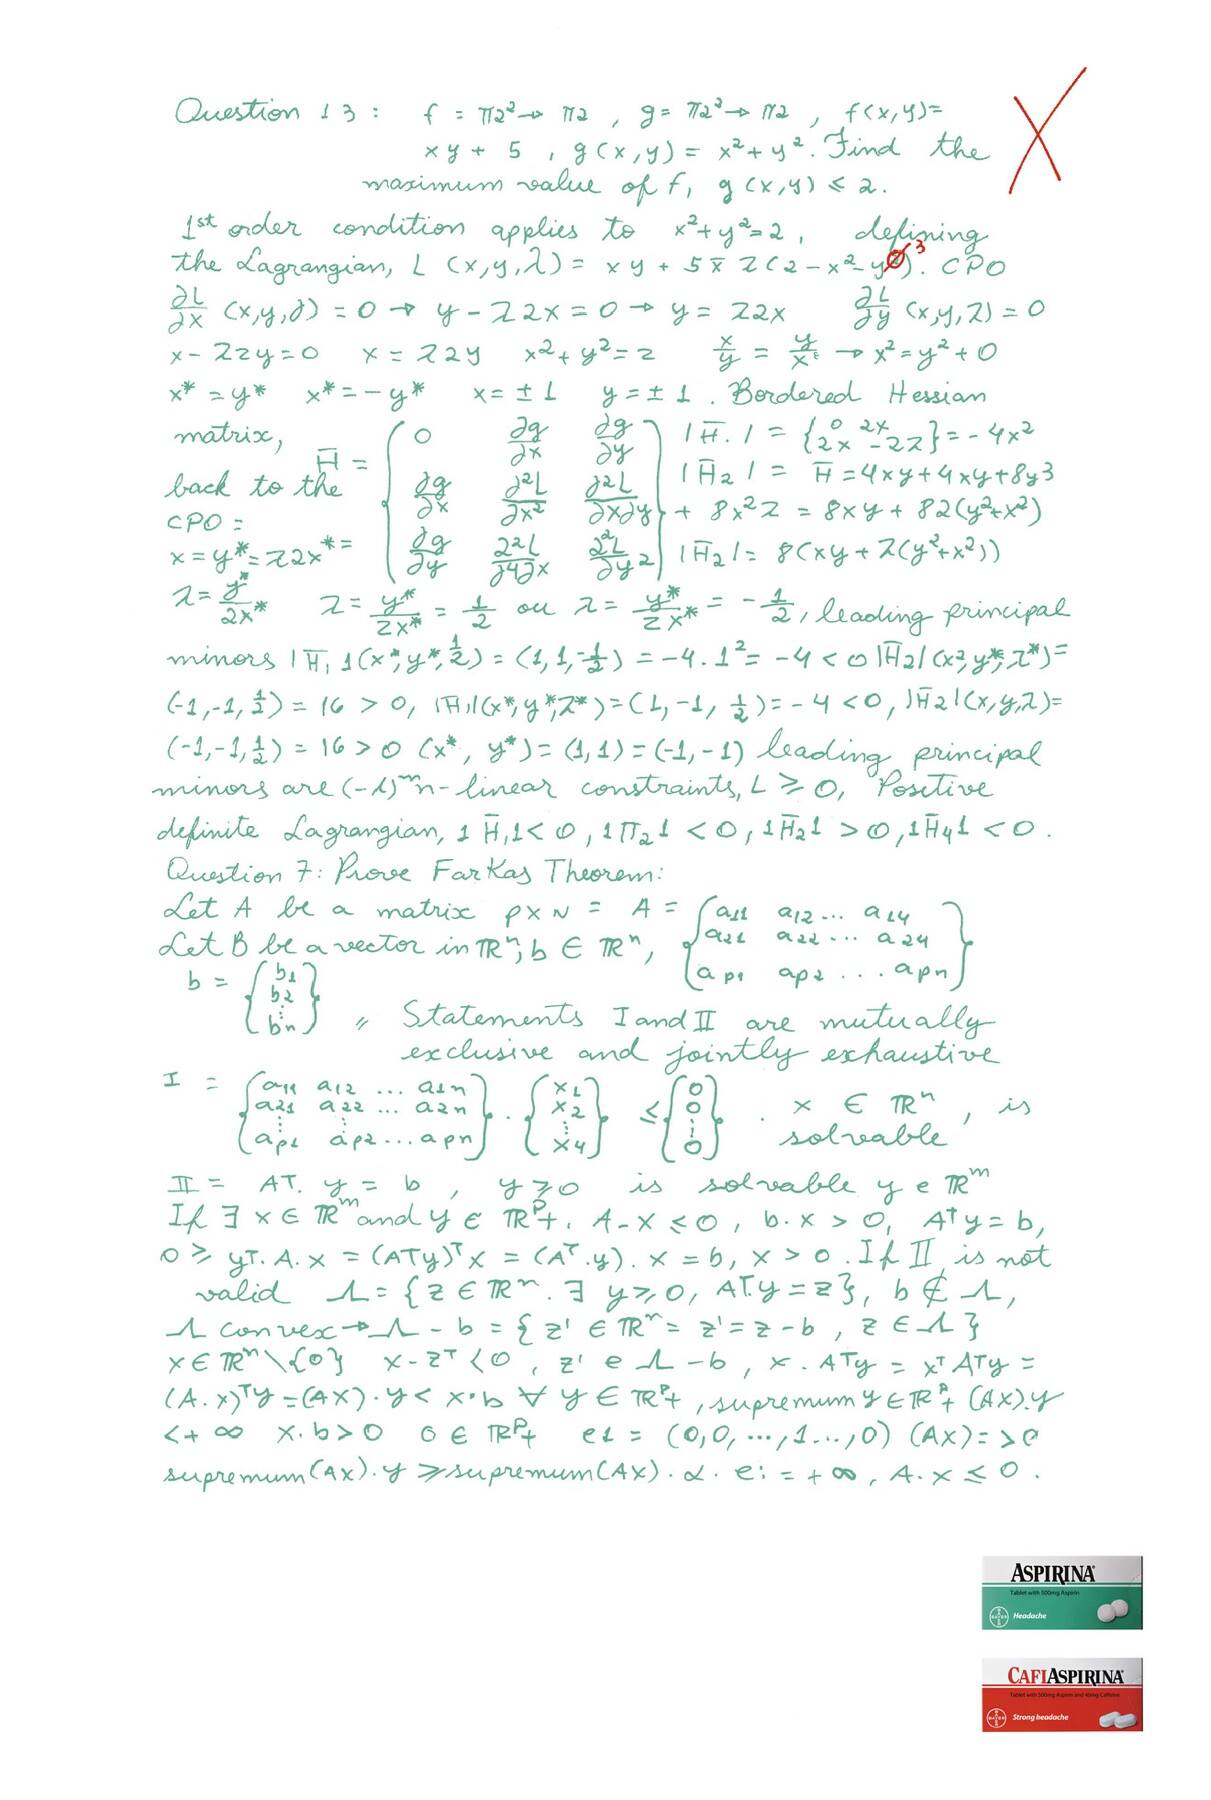 Question 13: f = π2² → π2 , g = π2² → π2 , f(x,y)=
xy + 5 , g(x,y) = x² + y². Find the
maximum value of f, g(x,y) ≤ 2.
1st order condition applies to x²+y²=2, defining
the Lagrangian, L (x,y,λ) = xy + 5 x̄ 2(2-x²-y²). CPO
3
∂L/∂x (x,y,∂) = 0 → y - λ2x = 0 → y = λ2x ∂L/∂y (x,y,λ) = 0
x - λ2y = 0 x = λ2y x²+y²=2 x/y = y/x → x² = y² + 0
x* = y* x* = -y* x = ±1 y = ±1 . Bordered Hessian
matrix, H̄ = { 0 ∂g/∂x ∂g/∂y |H̄.| = { 0 2x 2x -2λ } = -4x²
back to the ∂g/∂x ∂²L/∂x² ∂²L/∂x∂y |H̄2| = H̄ = 4xy + 4xy + 8y3
CPO = + 8x²λ = 8xy + 82(y²+x²)
x = y* = λ2x* = ∂g/∂y ∂²L/∂y∂x ∂²L/∂y² } |H̄2| = 8(xy + λ(y²+x²))
λ = y*/2x* λ = y*/2x* = 1/2 ou λ = y*/2x* = -1/2, leading principal
minors |H̄,1(x*,y*,1/2) = (1,1,-1/2) = -4.1² = -4 < 0 |H̄2|(x²,y*,λ*) =
(-1,-1,1/2) = 16 > 0, |H̄1|(x*,y*,λ*) = (1,-1, 1/2) = -4 < 0, |H̄2|(x,y,λ) =
(-1,-1,1/2) = 16 > 0 (x*, y*) = (1,1) = (-1,-1) leading principal
minors are (-1)^m n-linear constraints, L ≥ 0, Positive
definite Lagrangian, 1 H̄,1 < 0 , 1 π21 < 0, 1H̄21 > 0, 1H̄41 < 0 .
Question 7: Prove Farkas Theorem:
Let A be a matrix p x N = A = { a11 a12 ... a14
Let B be a vector in ℝⁿ; b ∈ ℝⁿ, a21 a22 ... a24
ap1 ap2 ... apn }
b = { b1 b2 ⋮ bn } „ Statements I and II are mutually
exclusive and jointly exhaustive
I = { a11 a12 ... a1n a21 a22 ... a2n ⋮ ap1 ap2 ... apn } . { x1 x2 ⋮ x4 } ≤ { 0 0 ⋮ 0 } . x ∈ ℝⁿ , is
solvable
II = AT. y = b , y ≥ 0 is solvable y e ℝᵐ
If ∃ x ∈ ℝᵐ and y ∈ ℝᴾ+. A-x ≤ 0 , b.x > 0, Aᵀy = b,
0 ≥ yᵀ.A.x = (Aᵀy)ᵀx = (Aᵀ.y). x = b, x > 0 . If II is not
valid Λ = { z ∈ ℝⁿ. ∃ y ≥ 0, Aᵀ.y = z }, b ∉ Λ,
Λ convex → Λ - b = { z' ∈ ℝⁿ = z' = z - b , z ∈ Λ }
x ∈ ℝⁿ \ {0} x - zᵀ < 0 , z' e Λ - b, x . Aᵀy = xᵀAᵀy =
(A.x)ᵀy = (Ax).y < x.b ∀ y ∈ ℝᴾ+ , supremum y ∈ ℝᴾ+ (Ax).y
< + ∞ x.b > 0 0 ∈ ℝᴾ+ e1 = (0,0, ..., 1 ..., 0) (Ax) = > 0
supremum (Ax).y ≥ supremum (Ax) . α . ei = +∞ , A.x ≤ 0 .
ASPIRINA
Tablet with 500mg Aspirin
BAYER Headache
CAFIASPIRINA
Tablet with 500mg Aspirin and 40mg Caffeine
BAYER Strong headache